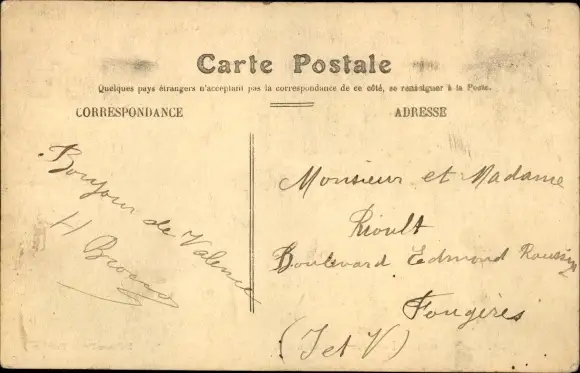 Carte Postale
Quelques pays étrangers n'acceptant pas la correspondance de ce côté, se renseigner à la Poste.
CORRESPONDANCE
ADRESSE
Bonjour de Valence
H
Monsieur et Madame
Rioult
Boulevard Edmond Roussin
Fougères
(I et V)